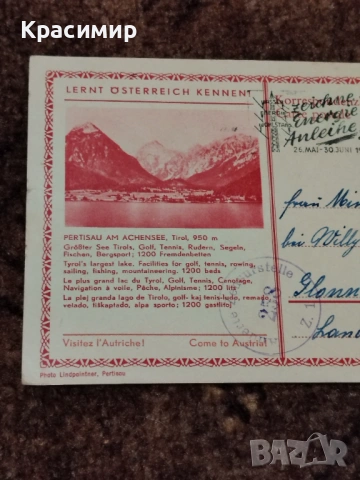 Красимир
LERNT ÖSTERREICH KENNEN!
Zeichne
Energie
Anleihe
26.MAI-30.JUNI
PERTISAU AM ACHENSEE, Tirol, 950 m
Größter See Tirols, Golf, Tennis, Rudern, Segeln,
Fischen, Bergsport; 1200 Fremdenbetten
Tyrol's largest lake. Facilities for golf, tennis, rowing,
sailing, fishing, mountaineering. 1200 beds
Le plus grand lac du Tyrol, Golf, Tennis, Canotage,
Navigation à voile, Pêche, Alpinisme; 1200 lits
La plej granda lago de Tirolo, golf- kaj tenis-ludo, remado,
velado, fiŝkaptado, alpa sporto; 1200 gastlitoj
Visitez l'Autriche!
Come to Austria!
Frau
bei Willy
Photo Lindpointner, Pertisau
bazar